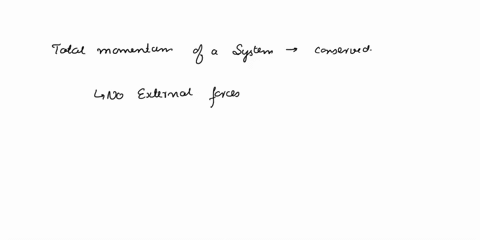 Total momentum of a System → conserved.
↳ No External forces